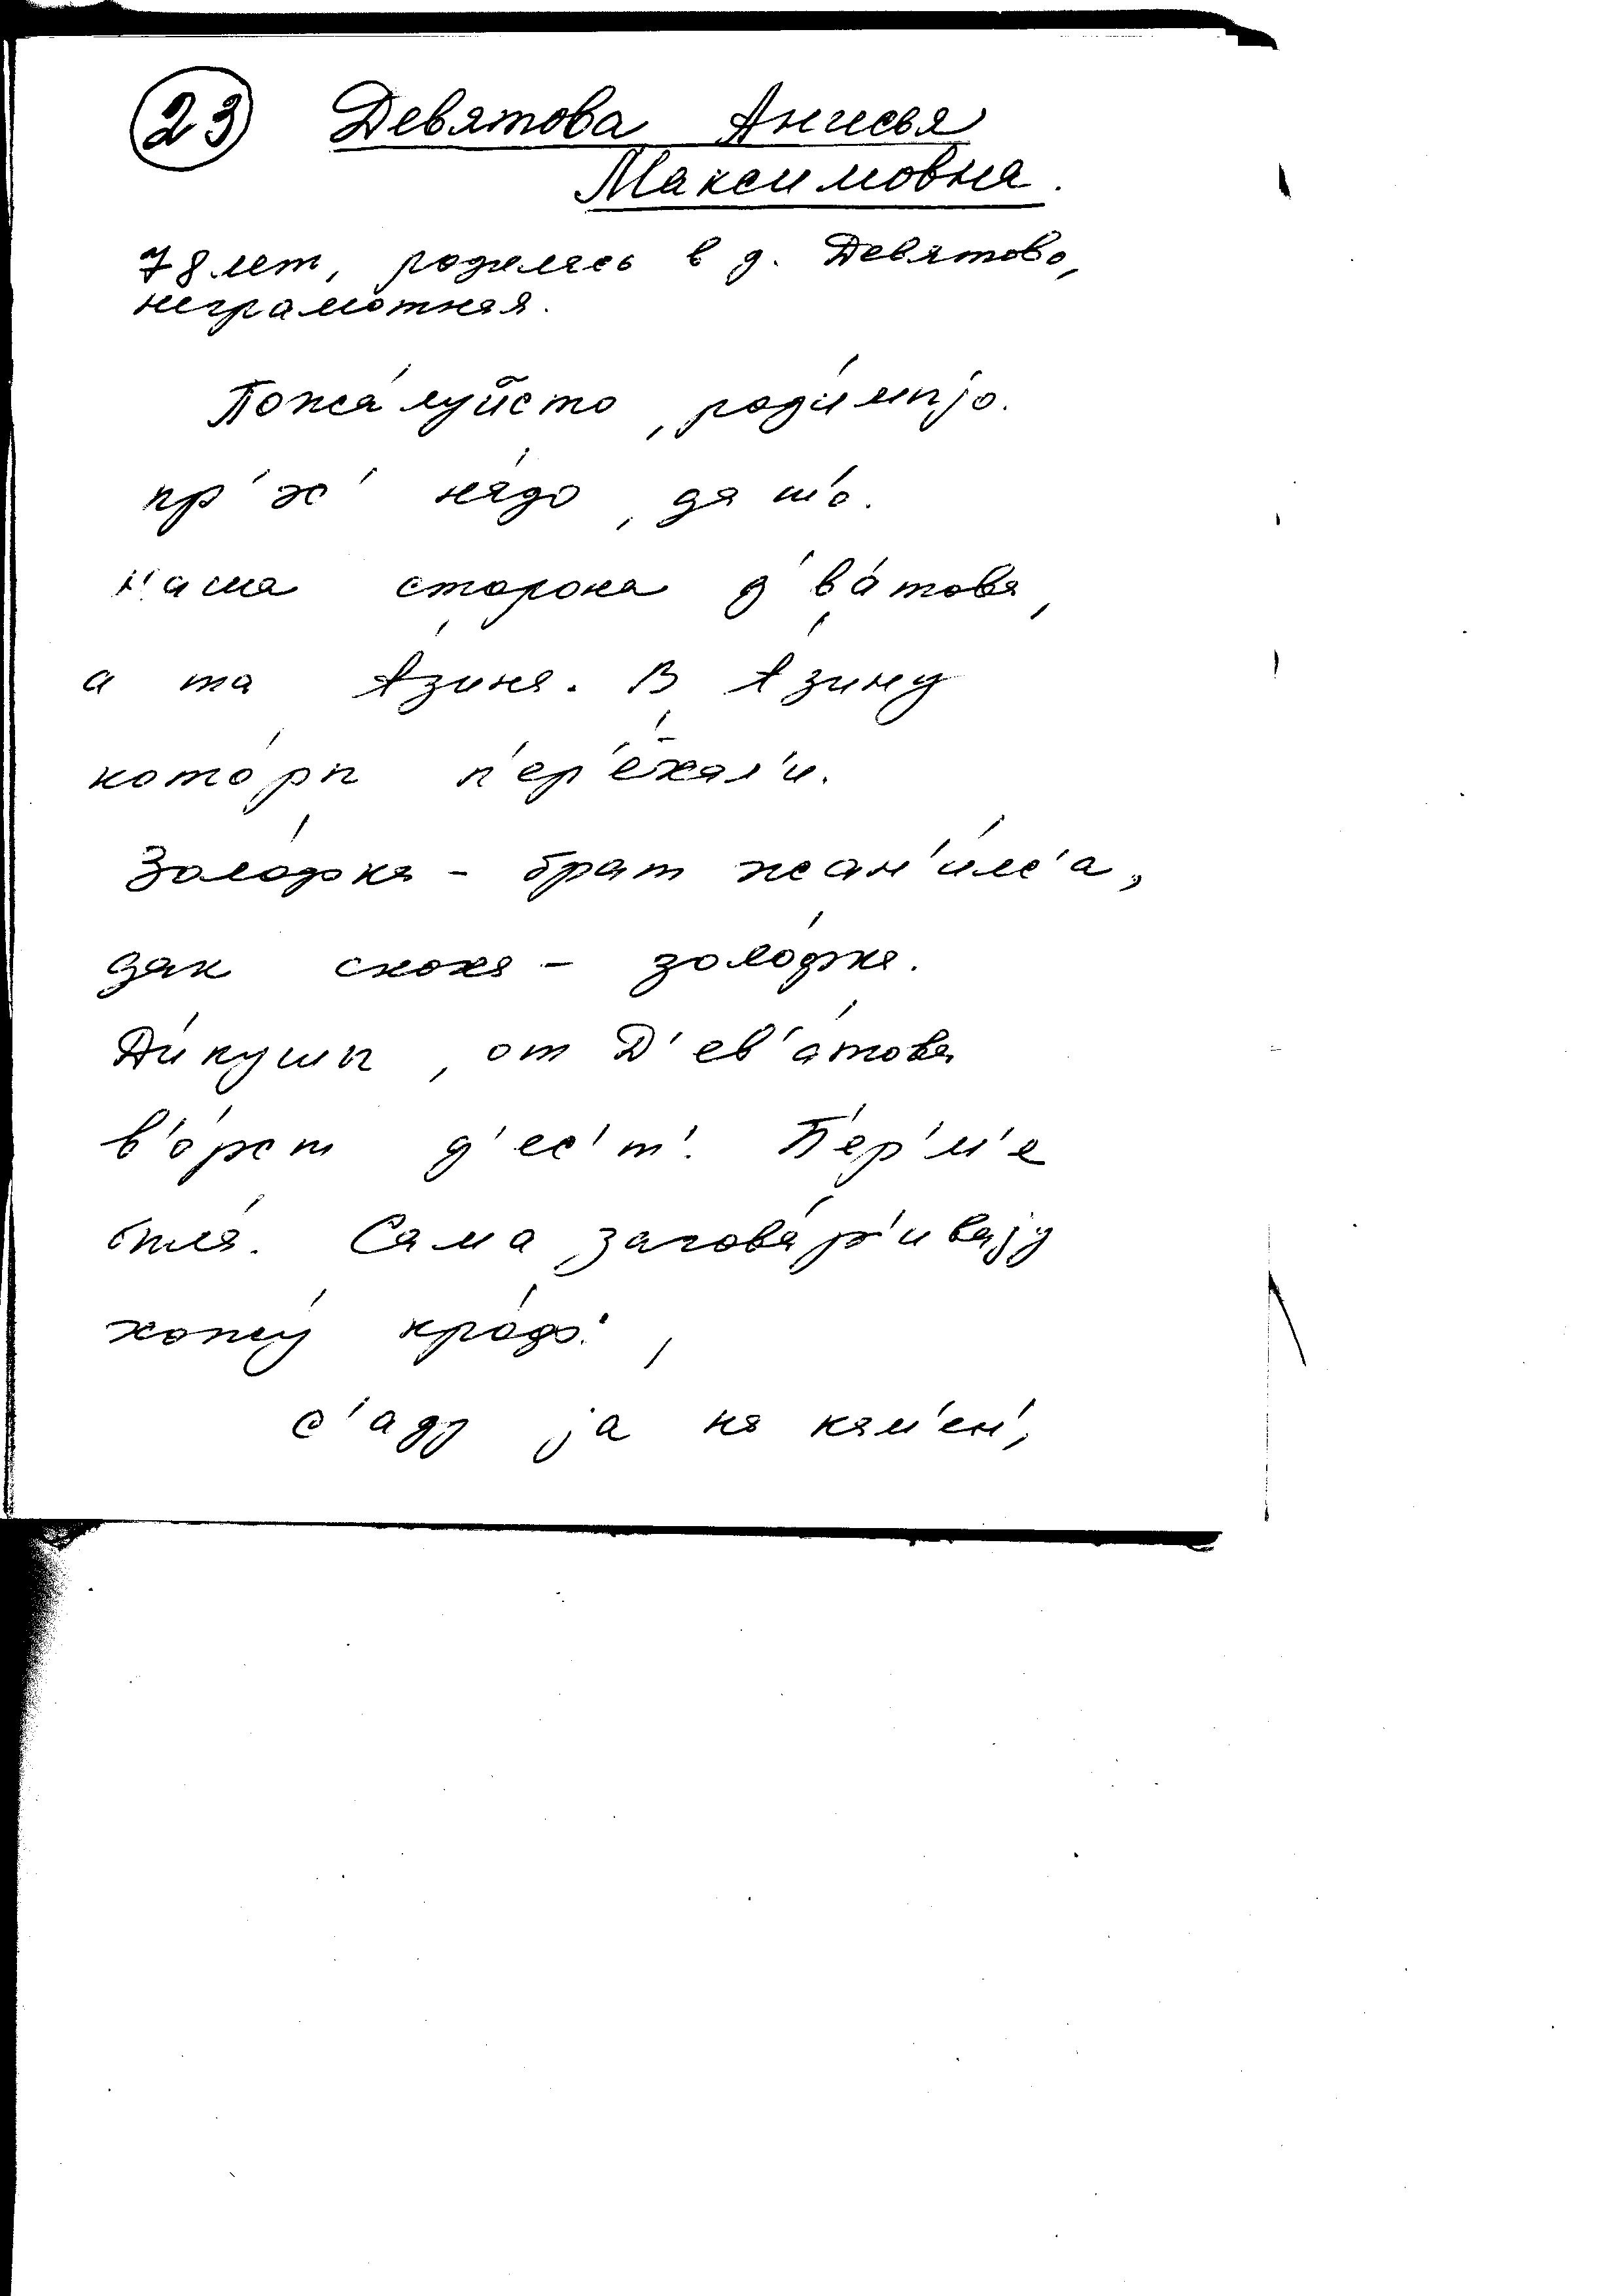 23 Девятова Анисья
Максимовна.
78 лет, родилась в д. Девятово,
неграмотная.
Пожа́луйсто, роди́мыjо.
на́до, да
наша сторона д'ва́това,
а та А́зиня. В А́зину
кото́ры п'ер'е́хал'и.
Золо́фка - брат жан'и́лс'а,
дак сноха - золо́фка.
Ди́куши, от Д'ев'а́това
в'о́рст д'ес'т'. П'ер'м'е
была́. Сама загова́р'иваjу
хожу́
с'аду jа на кам'ен',